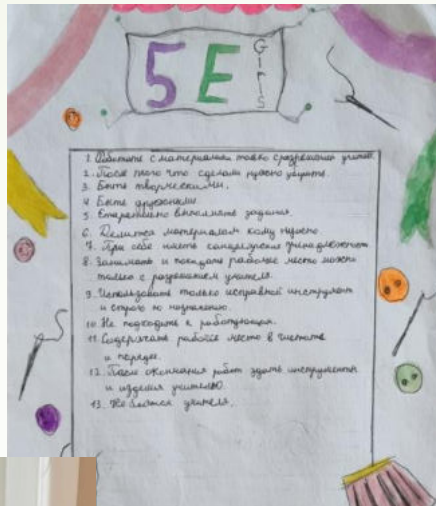 5 E Girls
1. Работать с материалами только с разрешения учителя.
2. После того что сделали нужно убирать.
3. Быть творческими.
4. Быть дружными.
5. Старательно выполнять задания.
6. Делится материалом кому нужно.
7. При себе иметь принадлежности
8. Занимать и покидать рабочее место можно
только с разрешением учителя.
9. Использовать только исправной инструмент
и строго по назначению.
10. Не подходить к работающим.
11. Содержать рабочее место в чистоте
и порядке.
12. После окончания работ здать инструменты
и изделия учителю.
13. Не боятся учителя.